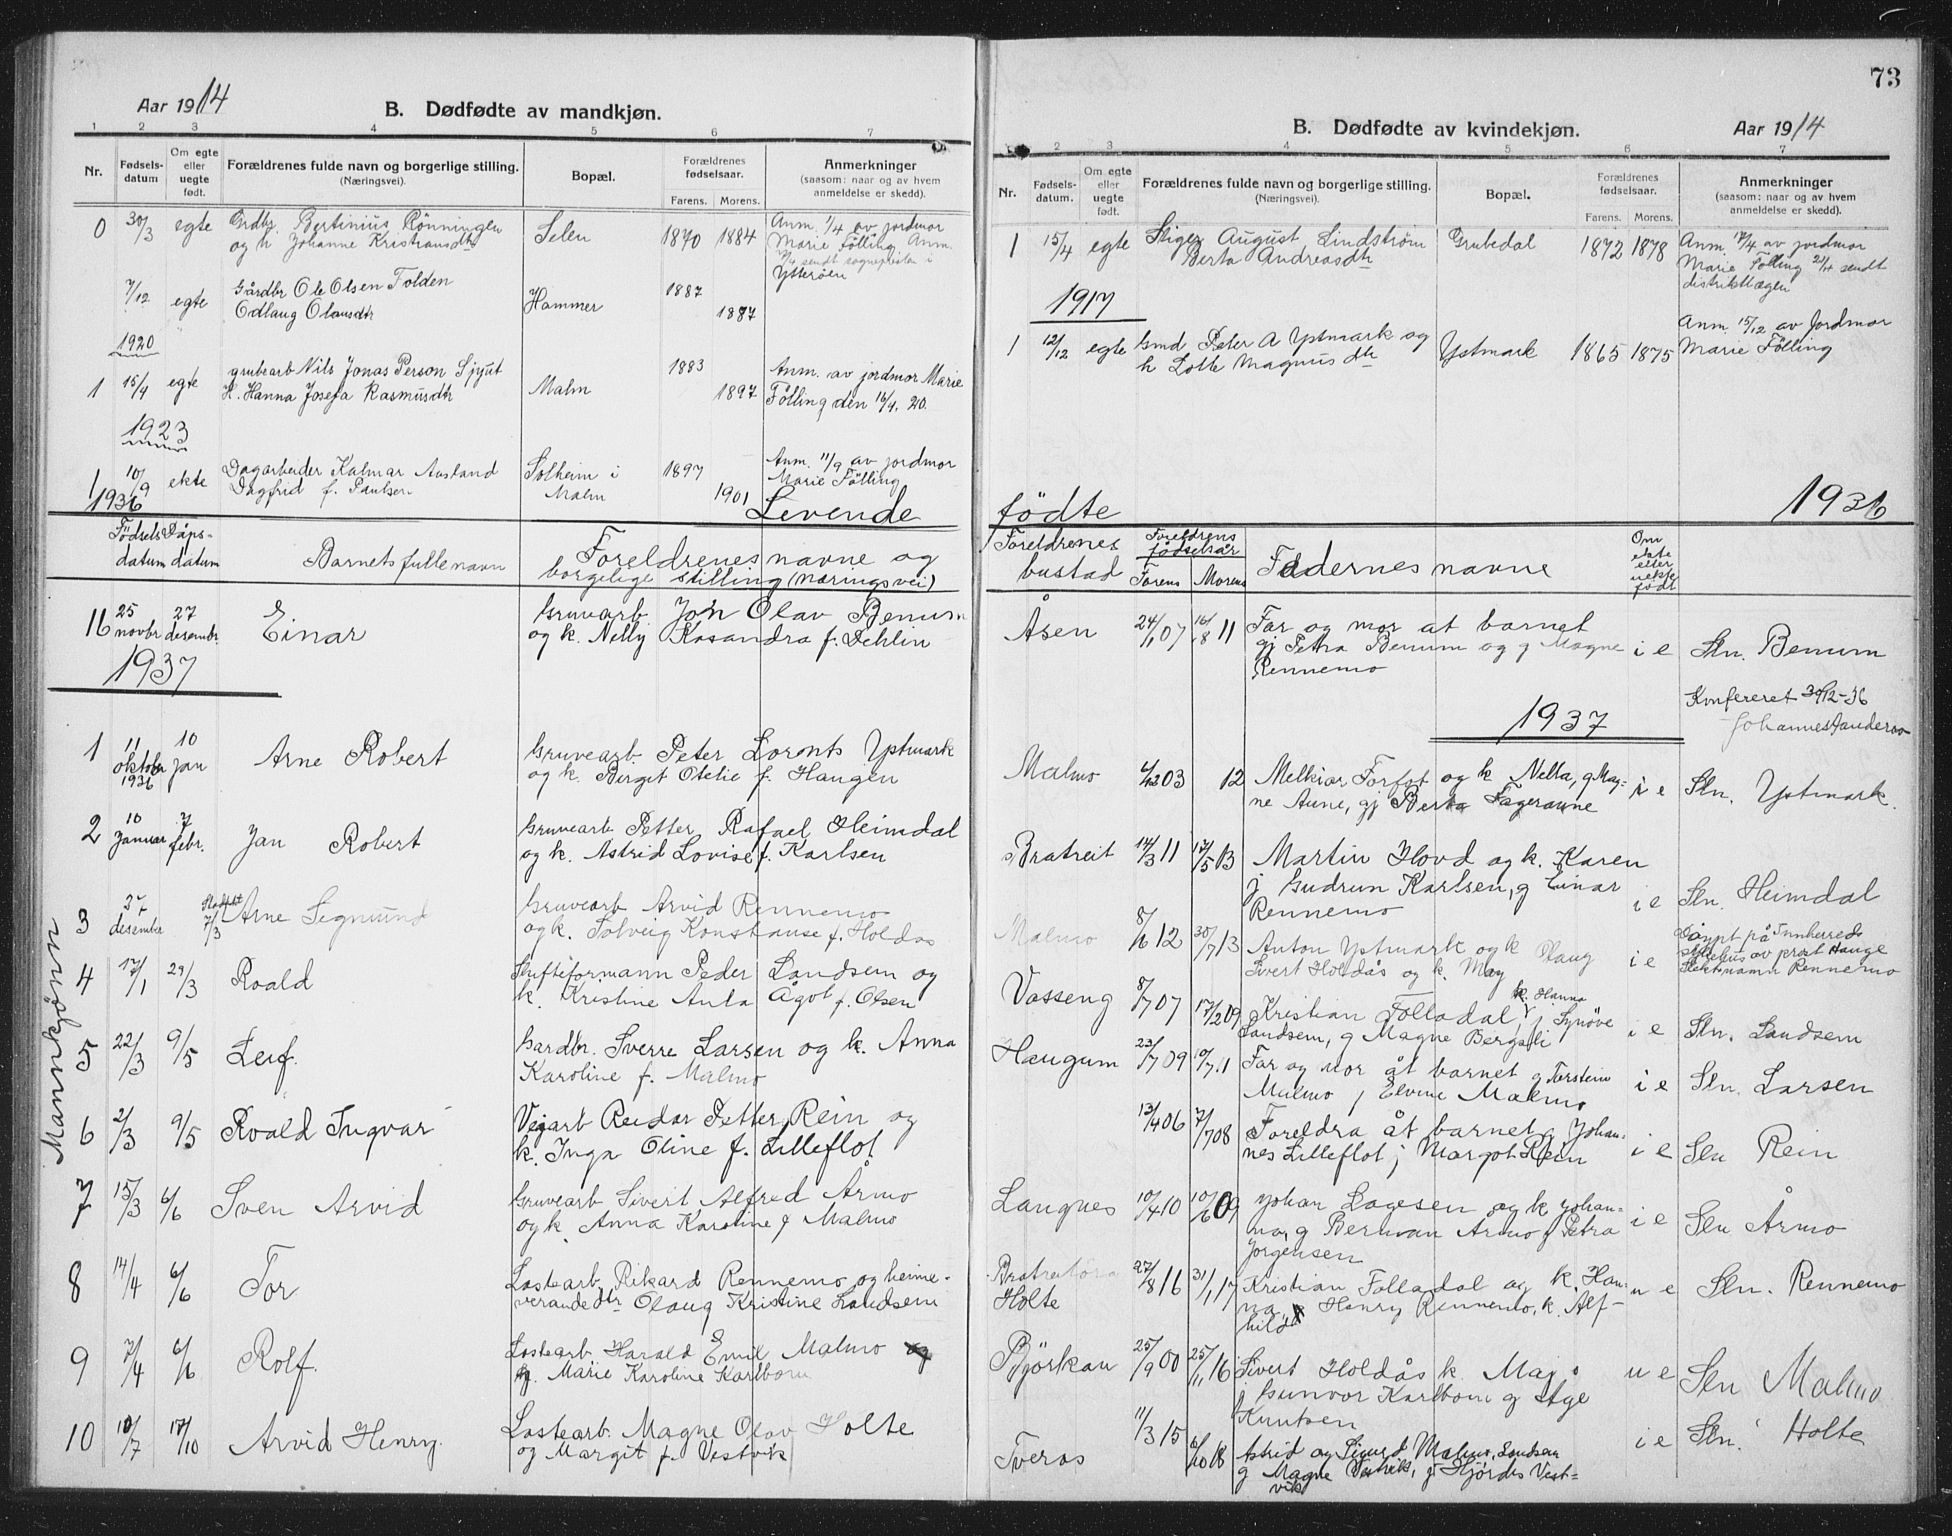 Aar 1914
B. Dødfødte av mandkjøn.
1 2 3 4 5 6 7
Nr.
Fødsels-
datum
Om egte
eller
uegte
født.
Forældrenes fulde navn og borgerlige stilling.
(Næringsvei).
Bopæl.
Forældrenes
fødselsaar.
Farens. Morens.
Anmerkninger
(saasom: naar og av hvem
anmeldelse er skedd).
0 30/3 egte Bertinius Rönningen
og h Johanne Kristiansdtr
Selen 1870 1884
Anm. 1/4 av jordmor
Marie Fölling Anm.
sendt sognepresten i
Ytteröen
7/12 egte Gårdbr Ole Olsen Folden
Odlaug Olausdtr
Hammer 1887
1887
1920
1 15/4 egte grubearb Nils Jonas Person Sjyut
H. Hanna Josefa Rasmusdtr
Malm 1883
1897
Anm. av jordmor Marie
Fölling den 16/4. 20.
1923
1 10/9 ekte Dagarbeider Kalmar Aasland
Dagfrid f. Paulsen
Solheim i
Malm
1897
1901
Anm. 11/9 av jordmor
Marie Fölling
1936
Levende
Födsels
datum
Dåps-
datum
Barnets fulle navn
Foreldrenes navne og
borgelige stilling (næringsvei)
11 25 novbr 27 desembr. Einar
Gruvearb. John Olav Benum
og k. Nelly Kasandra f. Dehlin
1937
Mannkjönn
1 11 oktober 1936 10 jan Arne Robert
Gruvearb. Peter Lornts Ystmark
og k. Birgit Otelie f. Haugen
2 10 Januar 7 febr. Jan Robert
Gruvearb Petter Rafael Heimdal
og k. Astrid Lovise f. Karlsen
3 27 desember Stadfest 7/3 Arne Segmund
Gruvearb Arvid Rennemo
og k. Solveig Konstanse f. Holdås
4 17/1 29/3 Roald
Skifteformann Peder Landsem og
k. Kristine Anta Ågot f. Olsen
5 22/3 9/5 Leif.
Gardbr. Sverre Larsen og k. Anna
Karoline f. Malmo
6 2/3 9/5 Roald Ingvar
Vegarb Reidar Petter Rein og
k. Inga Oline f. Lilleflot
7 15/3 6/6 Sven Arvid
Gruvearb Sivert Alfred Årmo
og k. Anna Karoline f Malmo
8 14/4 6/6 Tor
Lastearb. Rikard Rennemo og heime-
verande dtr Olaug Kristine Landsem
9 7/4 6/6 Rolf.
Lastearb. Harald Emil Malmo og
Marie Karoline Karlbom
10 10/7 17/10 Arvid Henry.
Lastearb. Magne Olav Holte
og Margit f. Vestvik
73
B. Dødfødte av kvindekjøn.
Aar 1914
2 3 4 5 6 7
Nr.
Fødsels-
datum.
Om egte
eller
uegte
født.
Forældrenes fulde navn og borgerlige stilling.
(Næringsvei).
Bopæl.
Forældrenes
fødselsaar.
Farens. Morens.
Anmerkninger
(saasom: naar og av hvem
anmeldelse er skedd).
1 15/4 egte Stiger August Lindström
Berta Andreasdtr
Grubedal 1872 1878
Anm. 17/4 av jordmor
Marie Fölling 21/4 sendt
distriktlægen
1917
1 12/12 egte Gmd Peter A Ystmark og
h Lotte Magnusdtr
Ystmark 1865 1875
Anm 15/12 av Jordmor
Marie Fölling
födte
1936
Foreldrenes
bustad
Foreldrens
födselsår
Farens Morens
Fadernes navne
Om
ekte
eller
uekte
född
Åsen 24/1 07 16/8 11
Far og mor at barnet
gj Petra Benum og g Magne
Rennemo
i e Sln. Benum
Konfereret 30/12-36
1937
Malmo 6/12 03 12
Melkior Forfot og k Nella, g Mag-
ne Aune, gj Berta Fageraune
i e Sln. Ystmark.
Bratreit 14/3 11 17/5 13
Martin Hovd og k. Karen
j Gudrun Karlsen, g Einar
Rennemo
i e Sln. Heimdal
Malmo 8/6 12 30/7 13
Anton Ystmark og k Olaug
Sivert Holdås og k. May
i e
Döypt på Innherreds
sykehus av prost Hauge
Slektsnamn Rennemo
Vasseng 8/7 07 17/2 09
k. Hanna
Kristian Folladal, j Synöve
Landsem, g Magne Bergsli
i e Sln. Landsem
Haugum 23/7 09 10/7 11
Far og mor åt barnet g Torstein
Malmo j Elvine Malmo
i e Sln. Larsen
13/4 06 7/7 08
Foreldra åt barnet g Johan-
nes Lilleflot j Margot Rein
i e Sln Rein
Langnes 10/4 10 10/6 09
Johan Lagesen og k Johan-
na, g Berman Armo j Petra
Jorgensen
i e Sln Årmo
Holte 27/8 16 31/1 17
Kristian Folladal og k. Han-
na, Henry Rennemo, k. Alf-
hild
u e Sln. Rennemo
Björkan 25/9 00 25/11 16
Sivert Holdås k. May
j Gunvor Karlbom g Åge
Knutsen
u e Sln Malmo
Tveras 11/3 15 6/10 18
Astrid og Sigurd Malmo, Landsem
g Magne Vestvik, gj Hjördis Vest-
vik
i e Sln. Holte